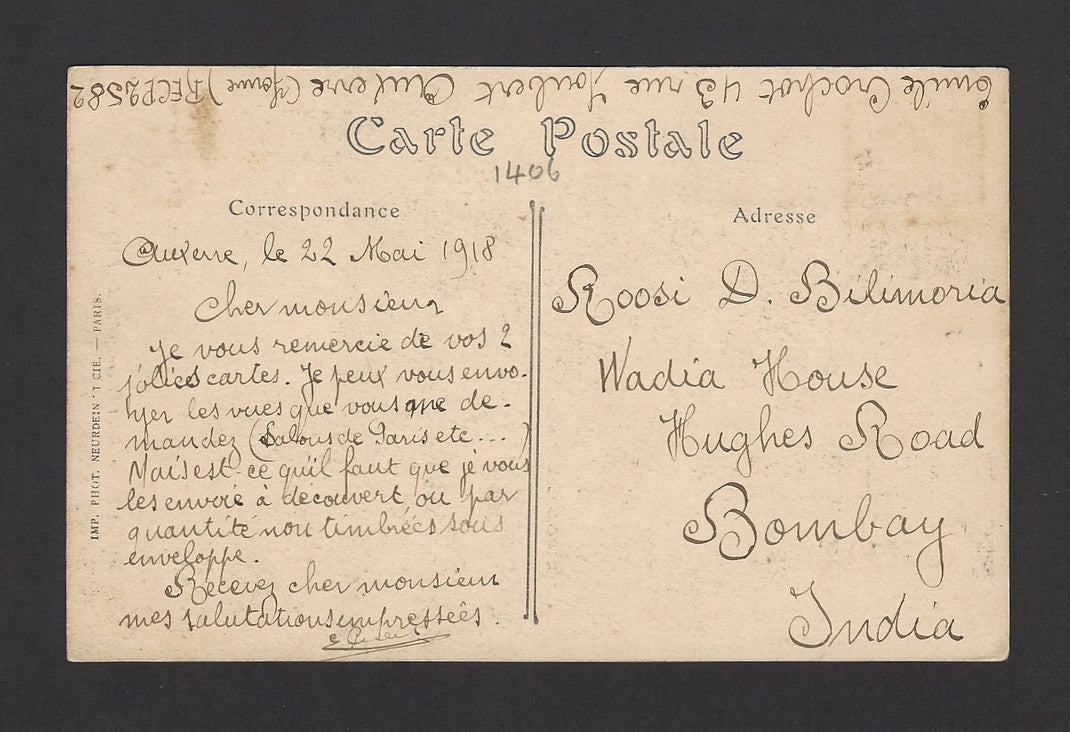 Emile Crochot 43 rue Joubert Auxerre (Yonne) RECP2582
Carte Postale
1406
Correspondance
Auxerre, le 22 Mai 1918
Cher monsieur
Je vous remercie de vos 2
jolies cartes. Je peux vous envo-
yer les vues que vous me de-
mandez (Salons de Paris etc...)
Mais est-ce qu'il faut que je vous
les envoie à découvert ou par
quantité non timbrées sous
enveloppe.
Recevez cher monsieur
mes salutations empressées.
IMP. PHOT. NEURDEIN CIE. — PARIS.
Adresse
Roosi D. Bilimoria
Wadia House
Hughes Road
Bombay
India